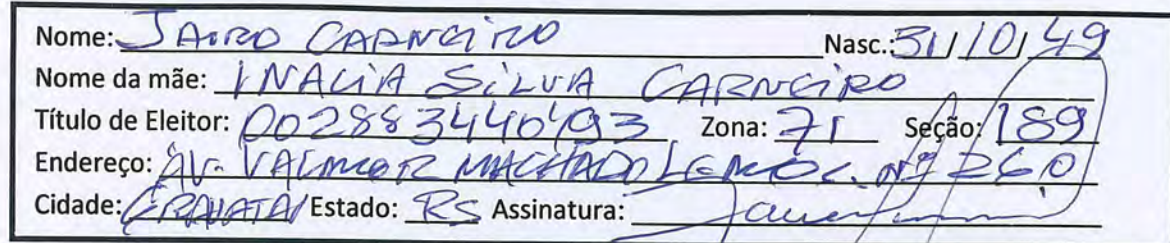 Nome: JAIRO CARNEIRO Nasc.: 31/10/49
Nome da mãe: INACIA SILVA CARNEIRO
Título de Eleitor: 002883440493 Zona: 71 Seção: 189
Endereço: AV. VALMOR MACHADO LEMOS. Nº 260
Cidade: GRAVATAI Estado: RS Assinatura: